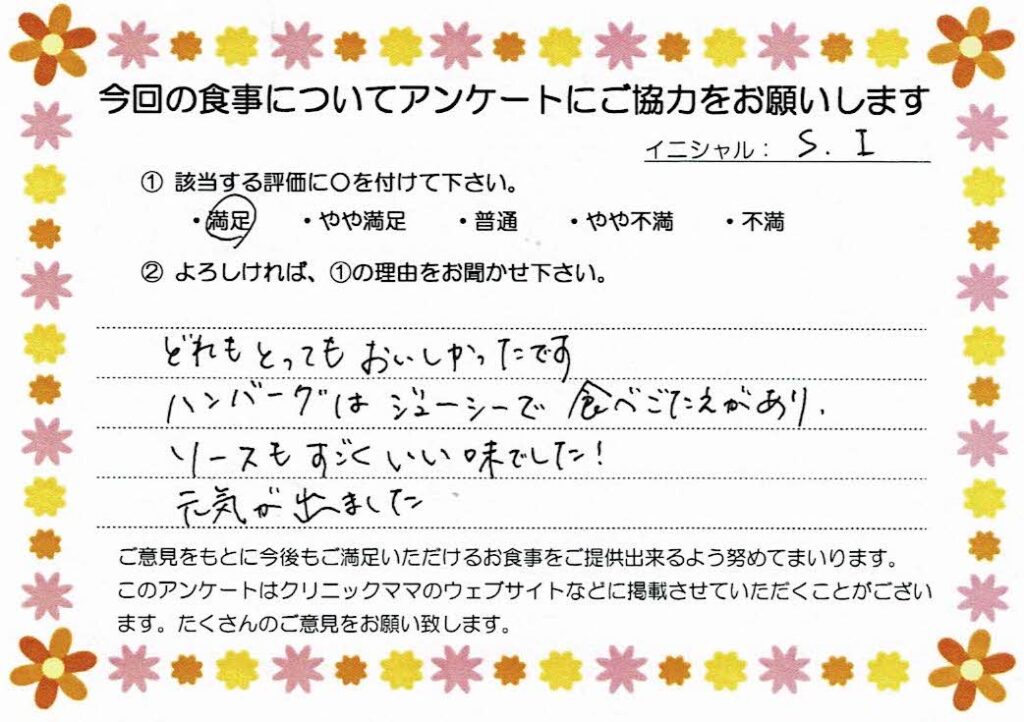 今回の食事についてアンケートにご協力をお願いします
イニシャル： S. I
① 該当する評価に〇を付けて下さい。
・満足 ・やや満足 ・普通 ・やや不満 ・不満
② よろしければ、①の理由をお聞かせ下さい。
どれもとってもおいしかったです
ハンバーグはジューシーで食べごたえがあり、
ソースもすごくいい味でした！
元気が出ました
ご意見をもとに今後もご満足いただけるお食事をご提供出来るよう努めてまいります。
このアンケートはクリニックママのウェブサイトなどに掲載させていただくことがござい
ます。たくさんのご意見をお願い致します。